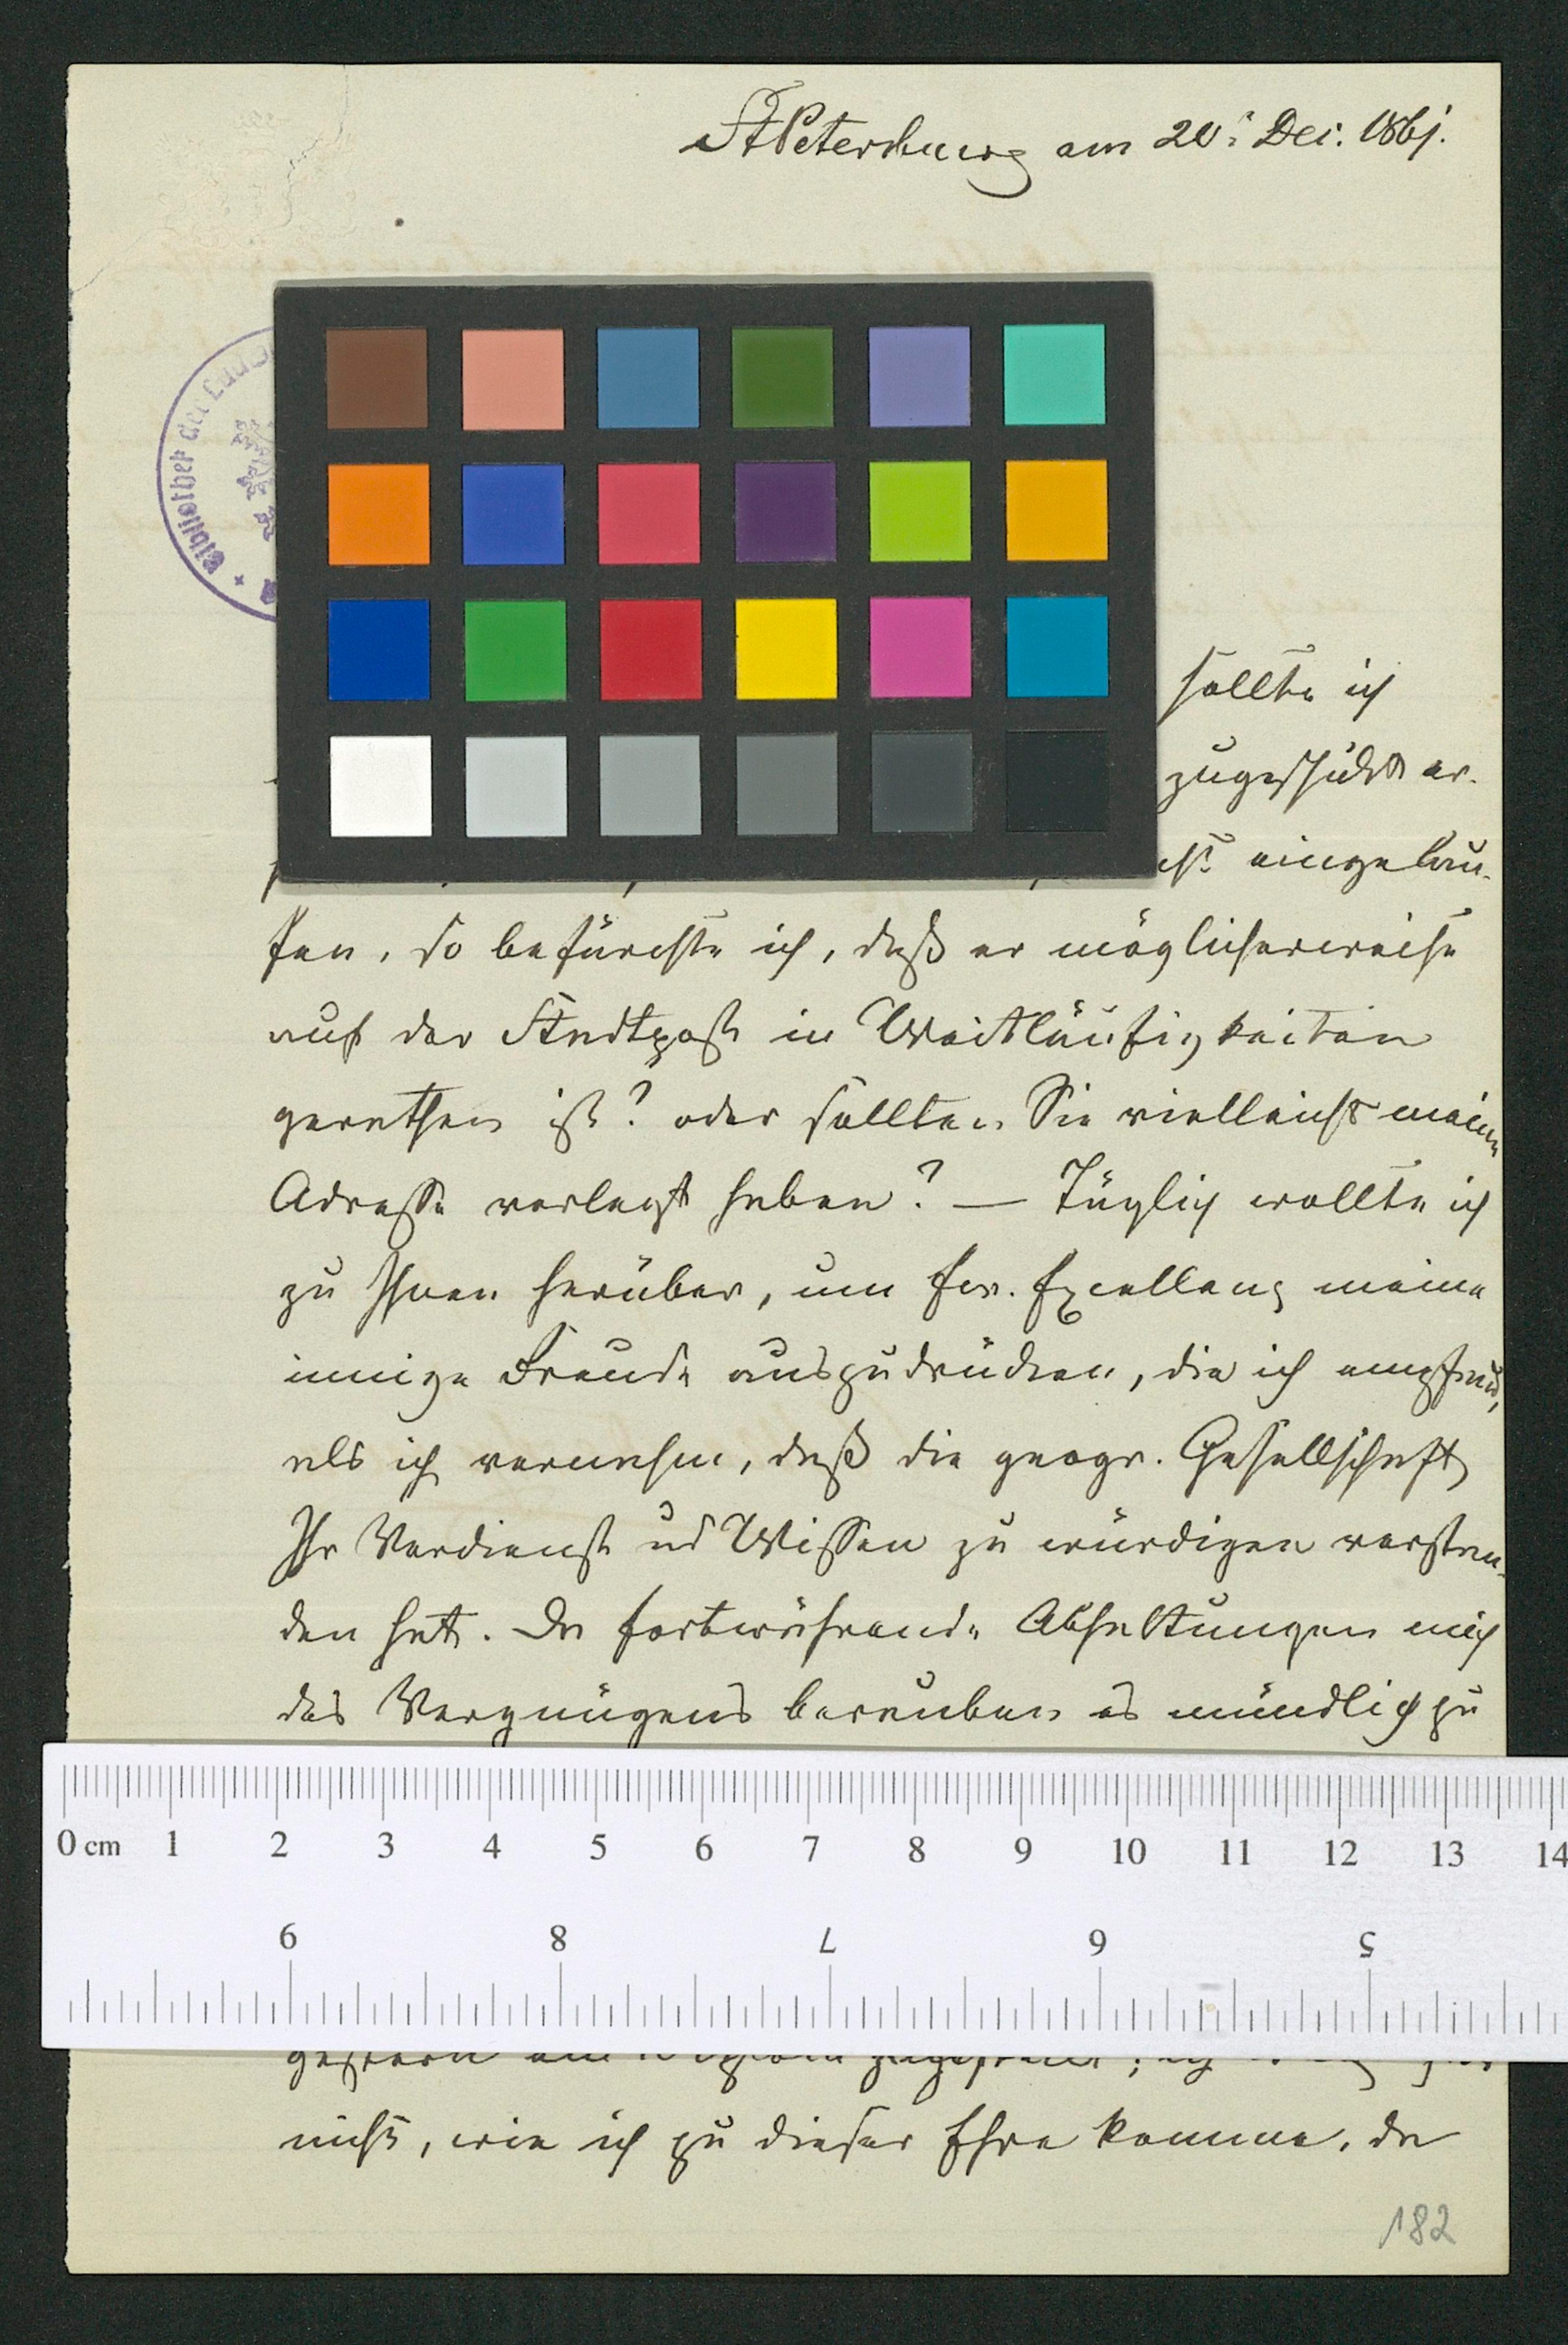 St Petersburg am 20: Dec. 1861.
Bibliothek der Land
sollte ich
zugeschickt er-
eingelau-
fen, so befürchte ich, daß er möglicherweise
auf der Stadtpost in Weitläufigkeiten
gerathen ist? oder sollten Sie vielleicht meine
Adresse verlegt haben? — Täglich wollte ich
zu Ihnen herüber, um Ew. Excellenz meine
innige Freude auszudrücken, die ich empfand,
als ich vernahm, daß die geogr. Gesellschaft
Ihr Verdienst ud Wissen zu würdigen verstan-
den hat. Da fortwährende Abhaltungen mich
des Vergnügens berauben es mündlich zu
0 cm 1 2 3 4 5 6 7 8 9 10 11 12 13 14
9 8 7 6 5
gestern
nicht, wie ich zu dieser Ehre komme, da
182